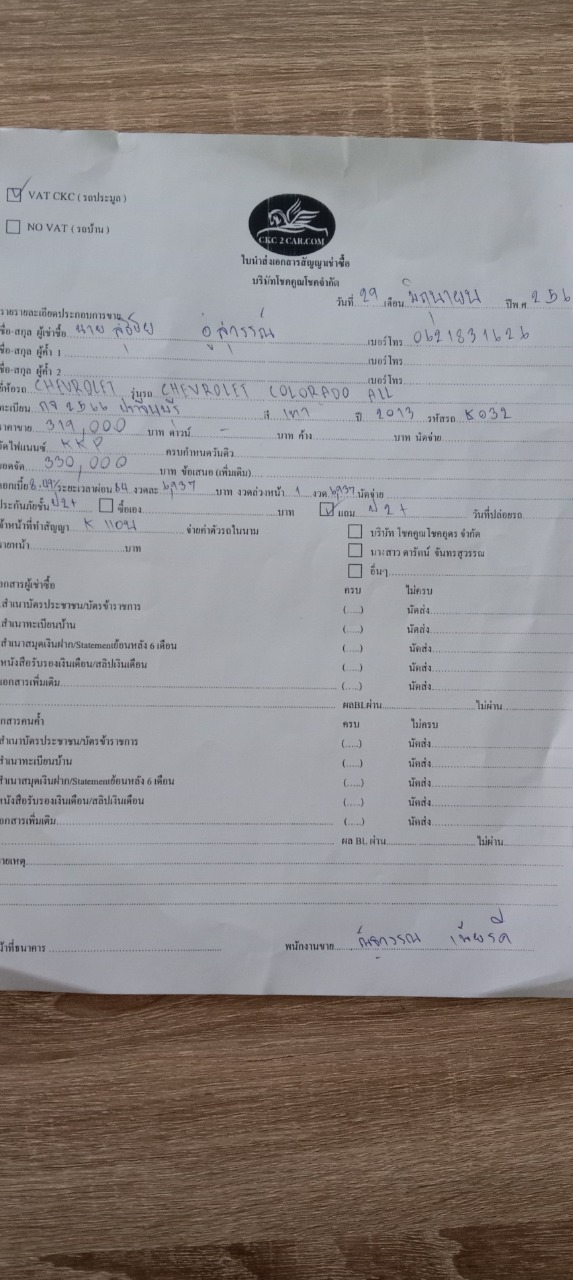 VAT CKC ( รถประมูล )
NO VAT ( รถบ้าน )
CKC 2 CAR.COM
ใบนำส่งเอกสารสัญญาเช่าซื้อ
บริษัทโชคคูณโชคจำกัด
วันที่ 29 เดือน มิถุนายน ปีพ.ศ. 256
รายละเอียดประกอบการขาย
ชื่อ-สกุล ผู้เช่าซื้อ นาย เบอร์โทร 0621831626
ชื่อ-สกุล ผู้ค้ำ 1 เบอร์โทร
ชื่อ-สกุล ผู้ค้ำ 2 เบอร์โทร
ยี่ห้อรถ CHEVROLET รุ่นรถ CHEVROLET COLORADO ALL
ทะเบียน 2566 ปราจีนบุรี สี เทา ปี 2013 รหัสรถ K032
ราคาขาย 319,000 บาท ดาวน์ - บาท ค้าง บาท นัดจ่าย
จัดไฟแนนซ์ KKP ครบกำหนดวันคิว
ยอดจัด 330,000 บาท ข้อเสนอ (เพิ่มเติม)
ดอกเบี้ย 8.09% ระยะเวลาผ่อน 84 งวดละ 6,937 บาท งวดล่วงหน้า 1 งวด 6,937 นัดจ่าย
ประกันภัยชั้น ป2+ ซื้อเอง บาท แถม ป 2+ วันที่ปล่อยรถ
เจ้าหน้าที่ทำสัญญา K แอน จ่ายค่าตัวรถในนาม บริษัท โชคคูณโชคยูคร จำกัด
นายหน้า บาท นางสาว ดารัตน์ จันทรสุวรรณ
อื่นๆ
เอกสารผู้เช่าซื้อ ครบ ไม่ครบ
สำเนาบัตรประชาชน/บัตรข้าราชการ (.....) นัดส่ง
สำเนาทะเบียนบ้าน (.....) นัดส่ง
สำเนาสมุดเงินฝาก/Statementย้อนหลัง 6 เดือน (.....) นัดส่ง
หนังสือรับรองเงินเดือน/สลิปเงินเดือน (.....) นัดส่ง
เอกสารเพิ่มเติม (.....) นัดส่ง
ผลBLผ่าน ไม่ผ่าน
เอกสารคนค้ำ ครบ ไม่ครบ
สำเนาบัตรประชาชน/บัตรข้าราชการ (.....) นัดส่ง
สำเนาทะเบียนบ้าน (.....) นัดส่ง
สำเนาสมุดเงินฝาก/Statementย้อนหลัง 6 เดือน (.....) นัดส่ง
หนังสือรับรองเงินเดือน/สลิปเงินเดือน (.....) นัดส่ง
เอกสารเพิ่มเติม (.....) นัดส่ง
ผล BL ผ่าน ไม่ผ่าน
หมายเหตุ
เจ้าหน้าที่ธนาคาร พนักงานขาย